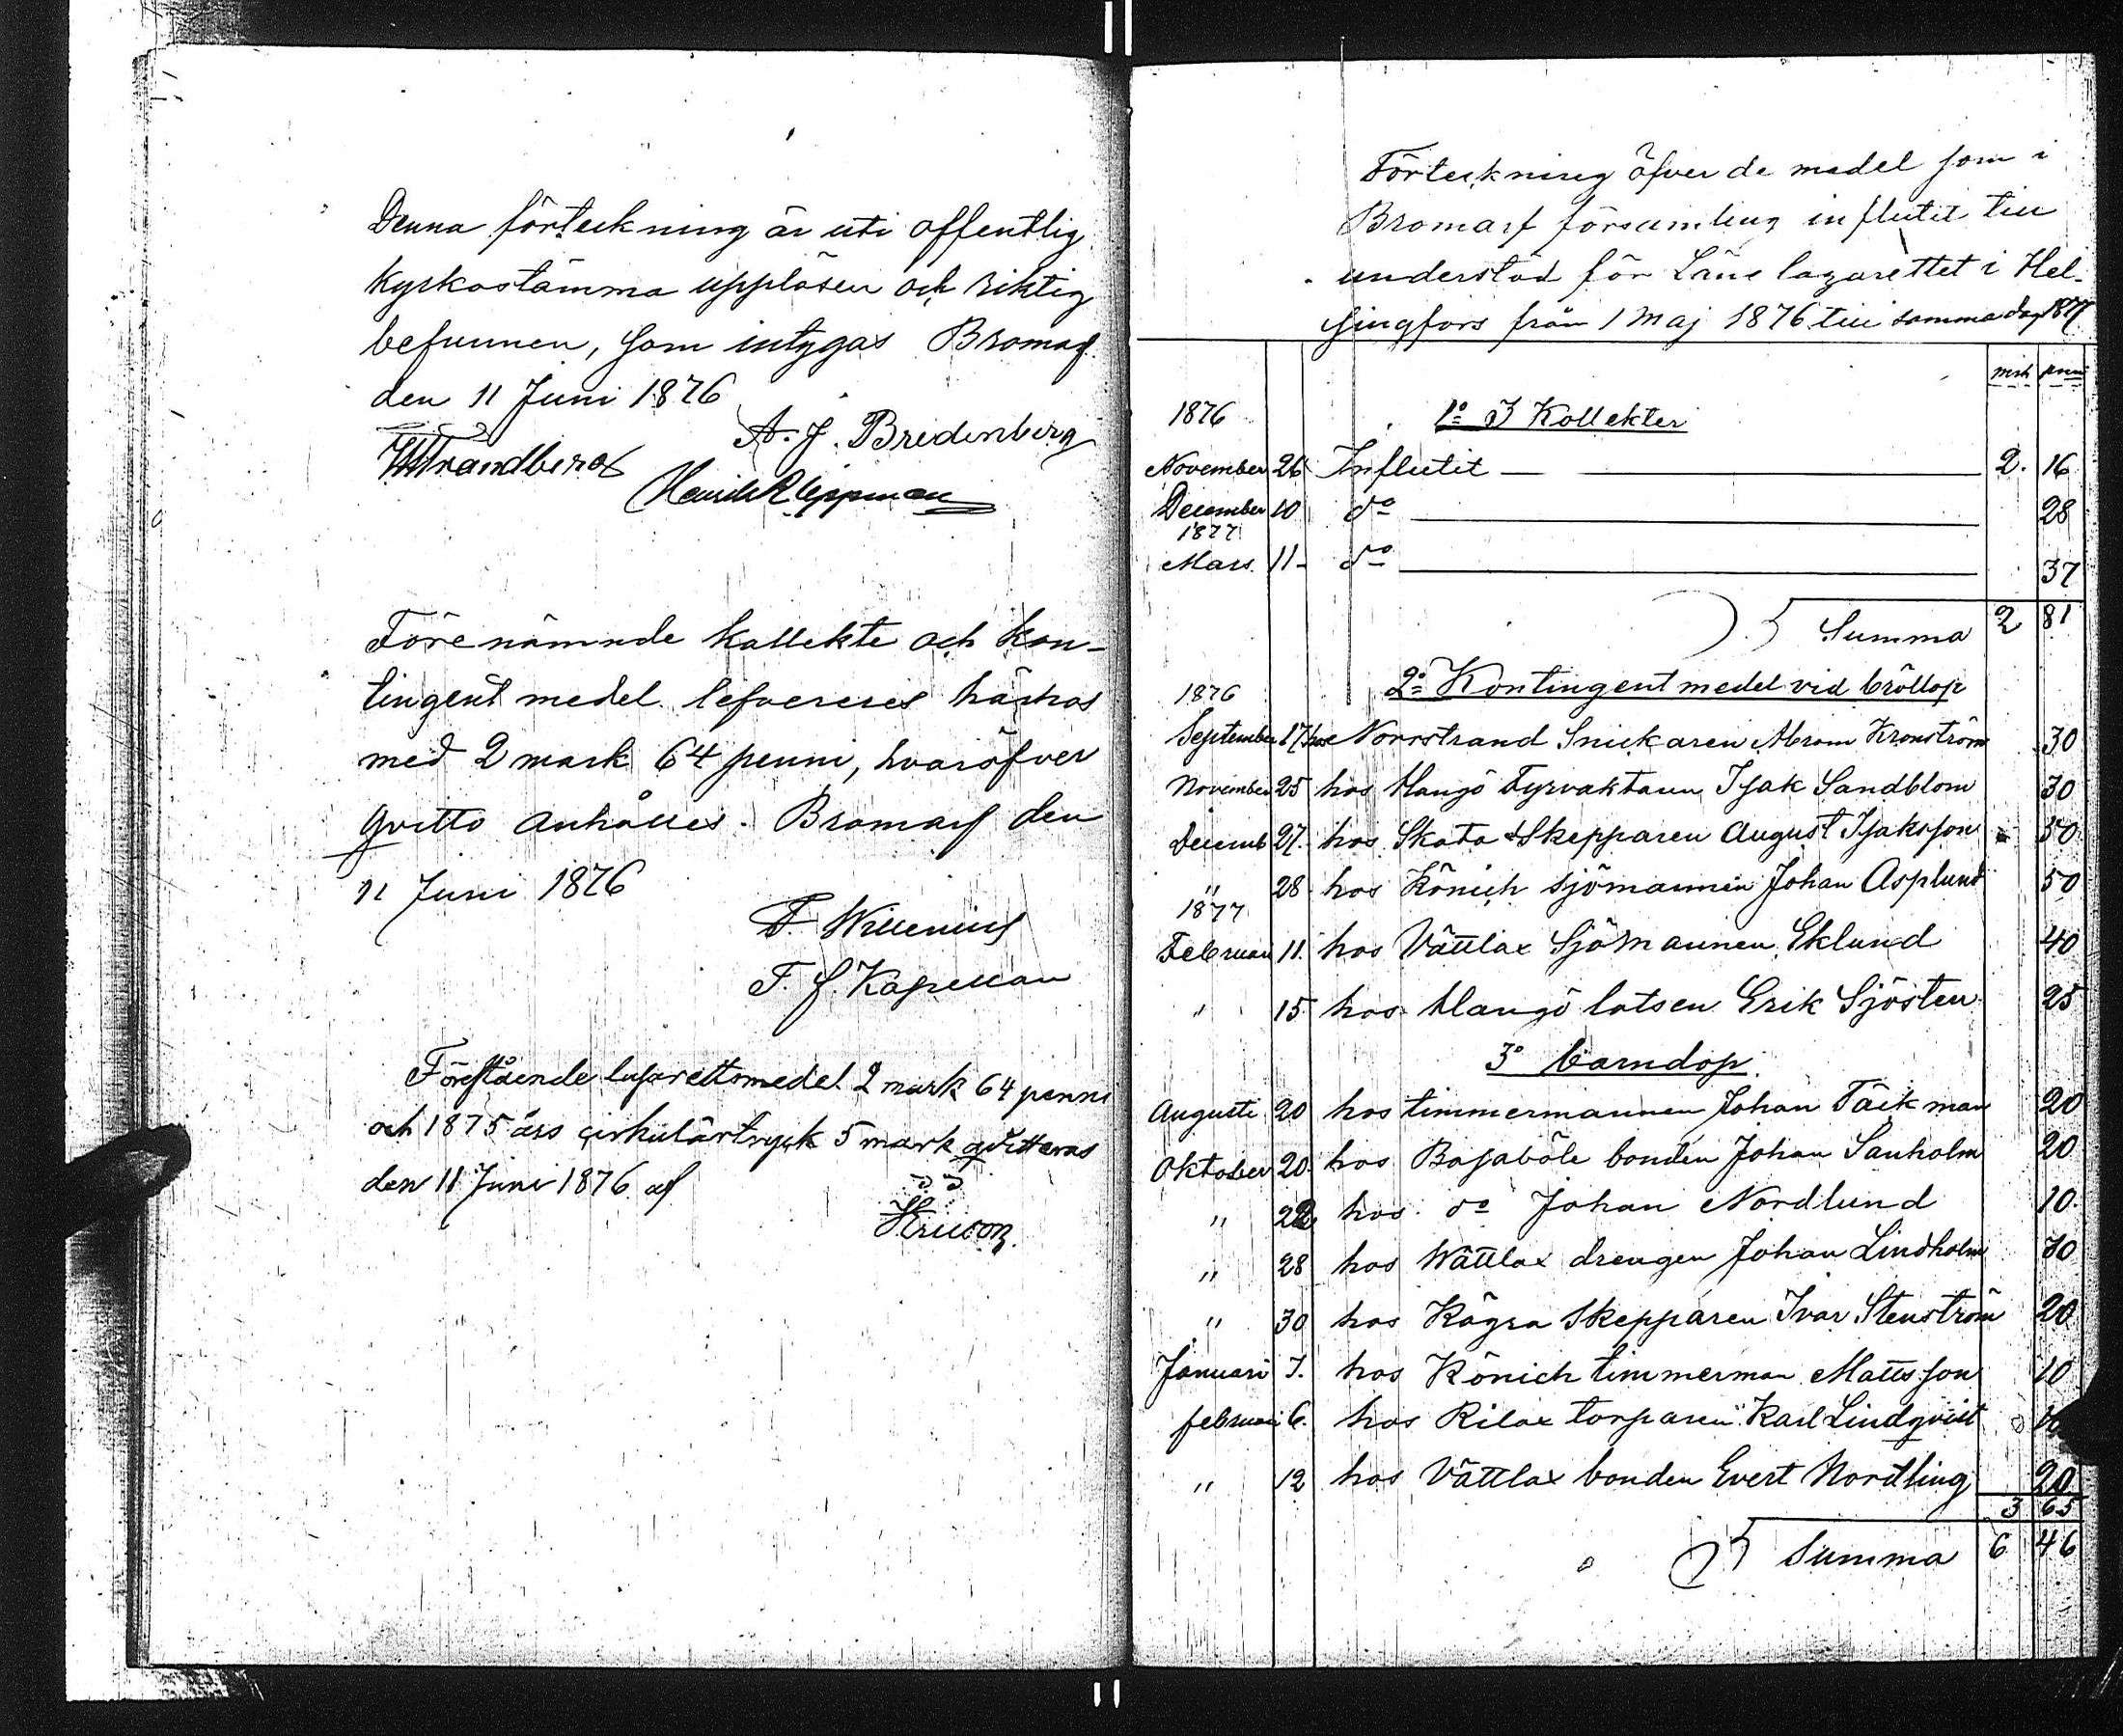 Denna förteckning är uti offentlig
kyrkostämma uppläsen och riktig
befunnen, som intygas Bromarf
den 11 Juni 1876
A. J. Bredenberg
Strandberg
Henrik Klippman
Förenämnde kollekte och kon-
tingent medel lefvereres härhos
med 2 mark 64 penni, hvaröfver
qvitto anhålles. Bromarf den
11 Juni 1876
F. Willenius
T. f. Kapellan
Förestående lasarettsmedel 2 mark 64 penni
och 1875 års cirkulärtryck 5 mark qvitteras
den 11 Juni 1876 af
Förteckning öfver de medel som i
Bromarf församling influtit till
understöd för Läns lazarettet i Hel-
singfors från 1 Maj 1876 till samma dag 1877
mrk pni
1876 1º I Kollekter
November 26 Influtit 2. 16
December 10 dº 28
1877
Mars 11 dº 37
Summa 2 81
1876 2º Kontingent medel vid bröllop
September 17 hos Norrstrand Snickaren Abram Kronström 30
November 25 hos Hangö Fyrvaktaren Isak Sandblom 30
Decemb 27. hos Skata Skepparen August Isaksson 50
" 28 hos Könich sjömannen Johan Asplund 50
1877
Februari 11. hos Vättlax Sjömannen Eklund 40
" 15 hos Hangö lotsen Erik Sjösten 25
3º barndop.
Augusti 20 hos timmermannen Johan Täckman 20
Oktober 20. hos Bajaböle bonden Johan Sanholm 20
" 22 hos dº Johan Nordlund 10.
" 28 hos Wättlax drengen Johan Lindholm 30
" 30 hos Kägra Skepparen Ivar Stenström 20
Januari 7. hos Könich timmerman Mattsson 10
februari 6. hos Rilax torparen Karl Lindqvist
" 12 hos Vättlax bonden Evert Nordling 20
3 65
Summa 6 46